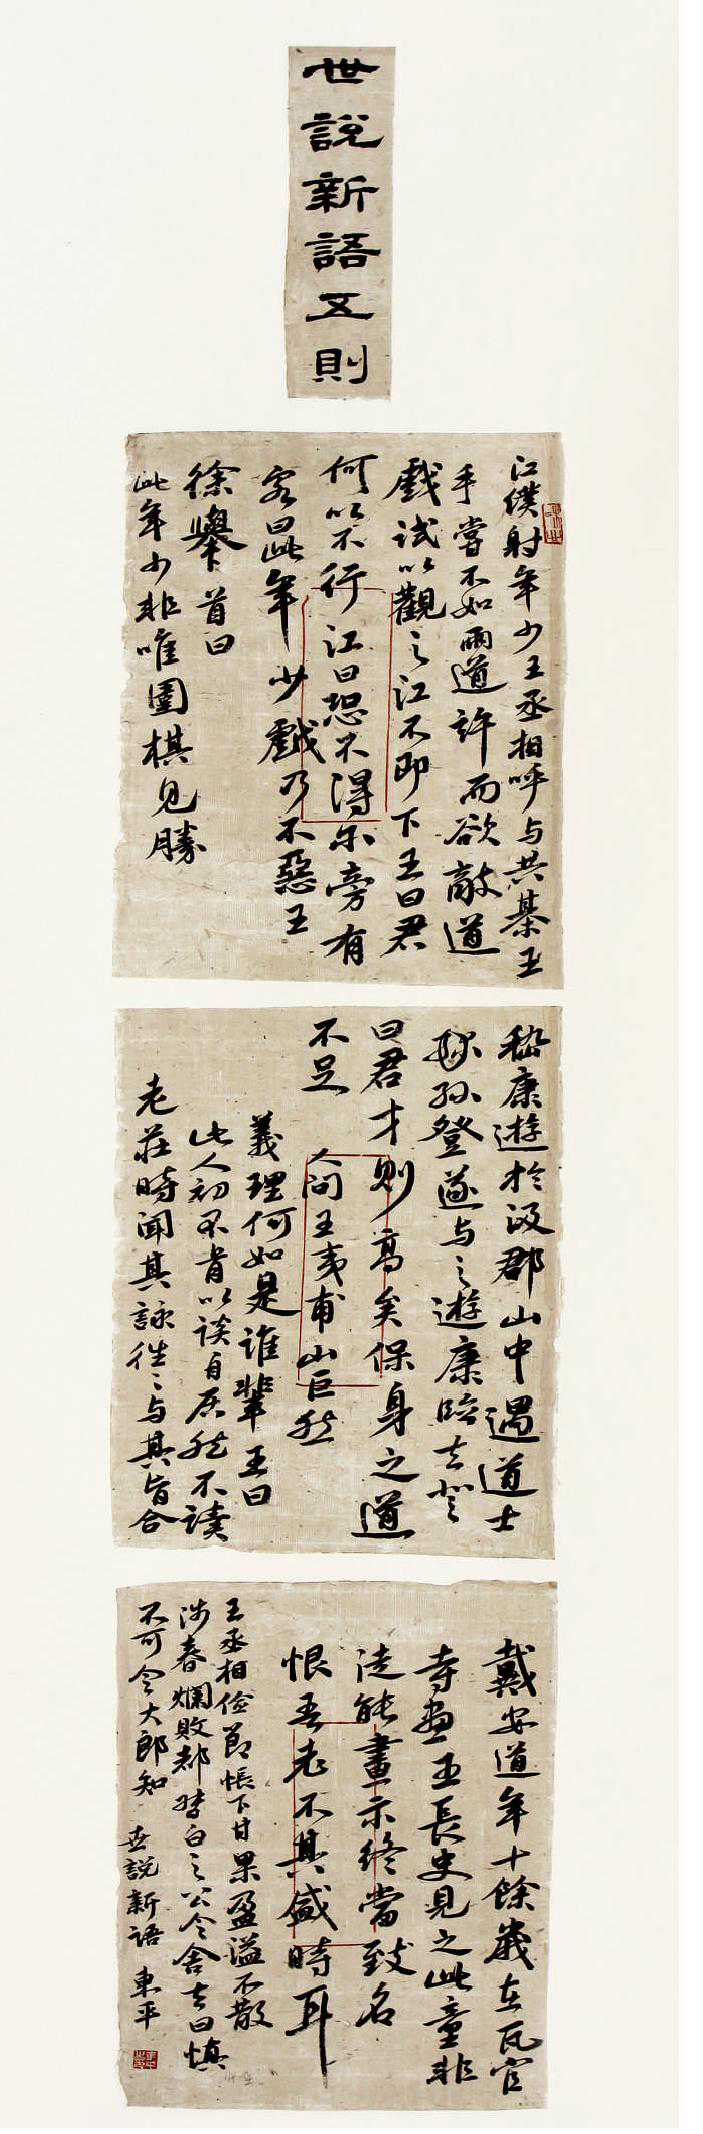 世說新語五則
江僕射年少王丞相呼与共棊王
手嘗不如兩道許而欲敵道
戲試以觀之江不即下王曰君
何以不行江曰恐不得尓旁有
客曰此年少戲乃不惡王
徐舉首曰
此年少非唯圍棋見勝
嵇康遊於汲郡山中遇道士
孫登遂与之遊康臨去登
曰君才則高矣保身之道
不足 人问王夷甫山巨
義理何如是誰輩王曰
此人初不肯以谈自居然不读
老莊時闻其詠往〻与其旨合
戴安道年十餘歲在瓦官
寺畫王長史見之此童非
徒能畫亦終當致名
恨吾老不其盛時耳
王丞相儉節帳下甘果盈溢不散
涉春爛敗都督白之公令舍去曰慎
不可令大郎知 世說新语 東平